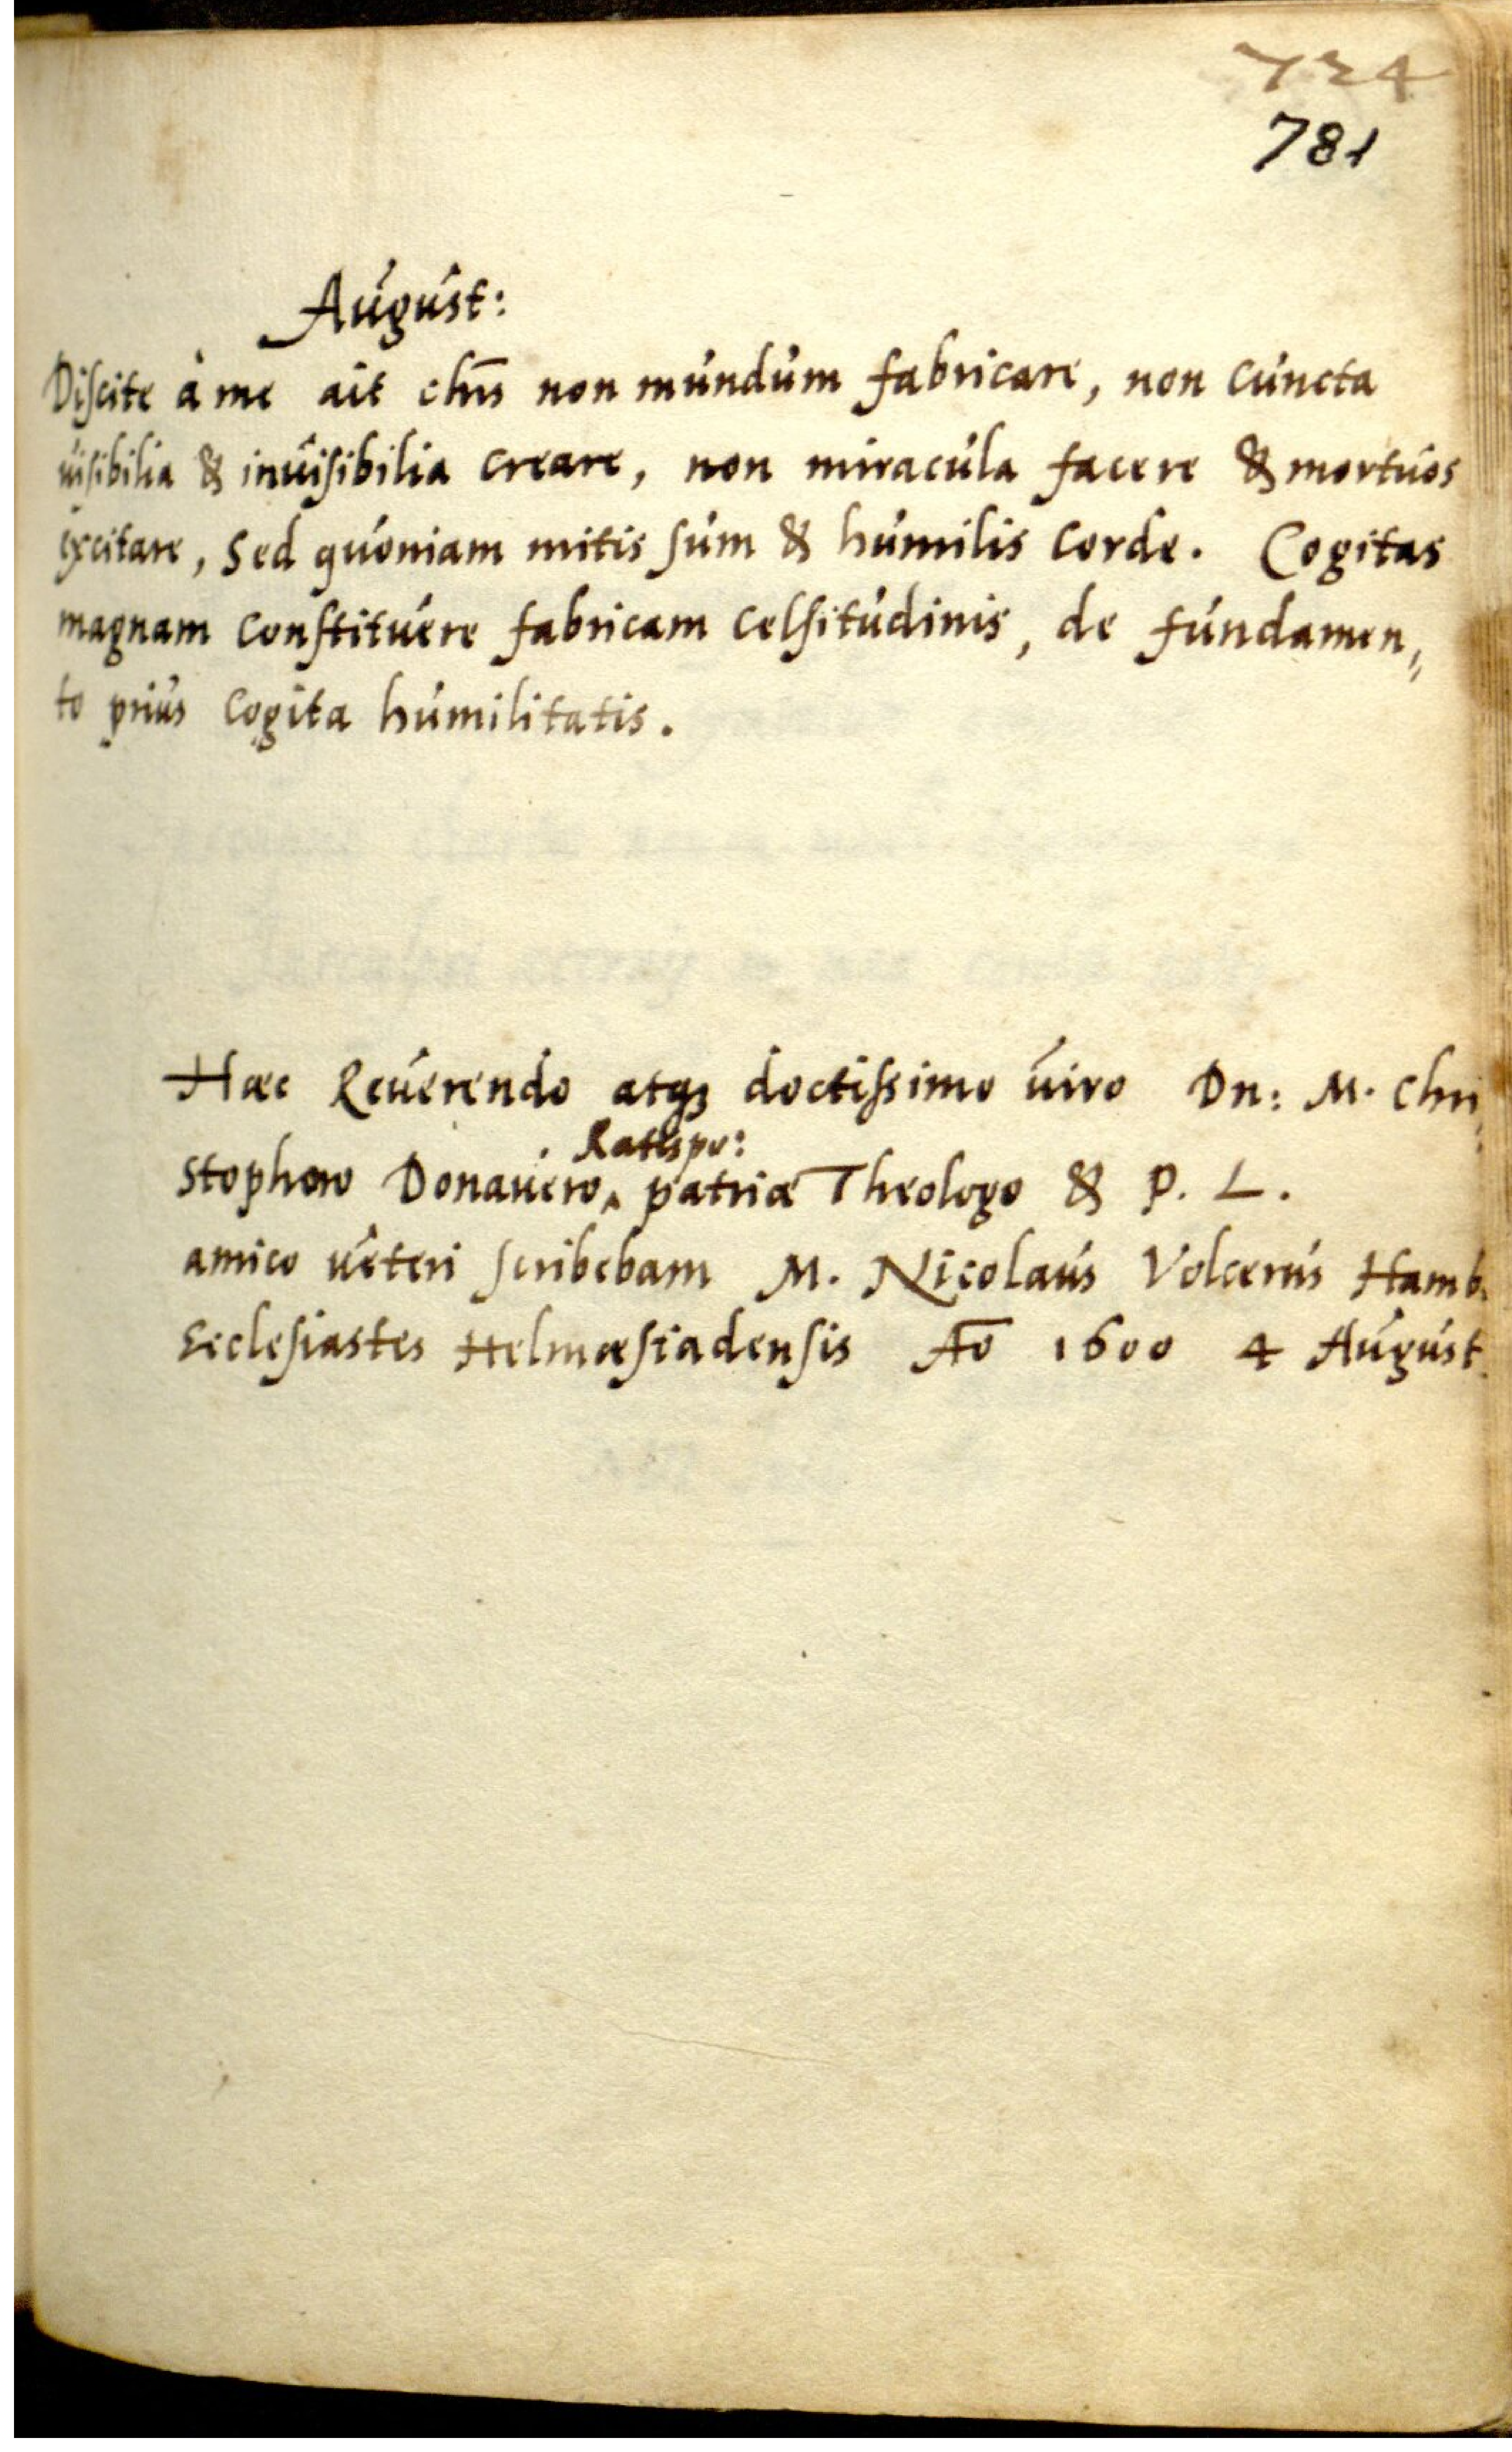 734
781
August:
Discite à me ait chūs non mundum fabricare, non cuncta
uisibilia & inuisibilia creare, non miracula facere & mortuos
excitare, sed quoniam mitis sum & humilis corde. Cogitas
magnam constituere fabricam celsitudinis, de fundamen„
to prius cogita humilitatis.
Hæc Reuerendo atqꝫ doctissimo uiro Dn: M. Chri„
Ratispo:
stophoro Donauero‸ patriæ Theologo & P. L.
amico ueteri scribebam M. Nicolaus Volcerus Hamb.
Ecclesiastes Helmæstadensis Aō 1600 4 August.